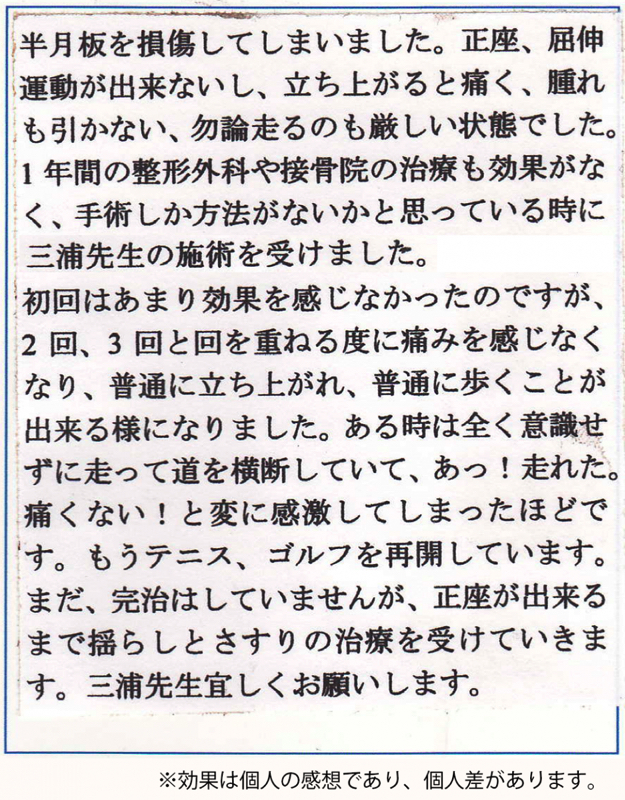 半月板を損傷してしまいました。正座、屈伸
運動が出来ないし、立ち上がると痛く、腫れ
も引かない、勿論走るのも厳しい状態でした。
1年間の整形外科や接骨院の治療も効果がな
く、手術しか方法がないかと思っている時に
三浦先生の施術を受けました。
初回はあまり効果を感じなかったのですが、
2回、3回と回を重ねる度に痛みを感じなく
なり、普通に立ち上がれ、普通に歩くことが
出来る様になりました。ある時は全く意識せ
ずに走って道を横断していて、あっ！走れた。
痛くない！と変に感激してしまったほどで
す。もうテニス、ゴルフを再開しています。
まだ、完治はしていませんが、正座が出来る
まで揺らしとさすりの治療を受けていきま
す。三浦先生宜しくお願いします。
※効果は個人の感想であり、個人差があります。